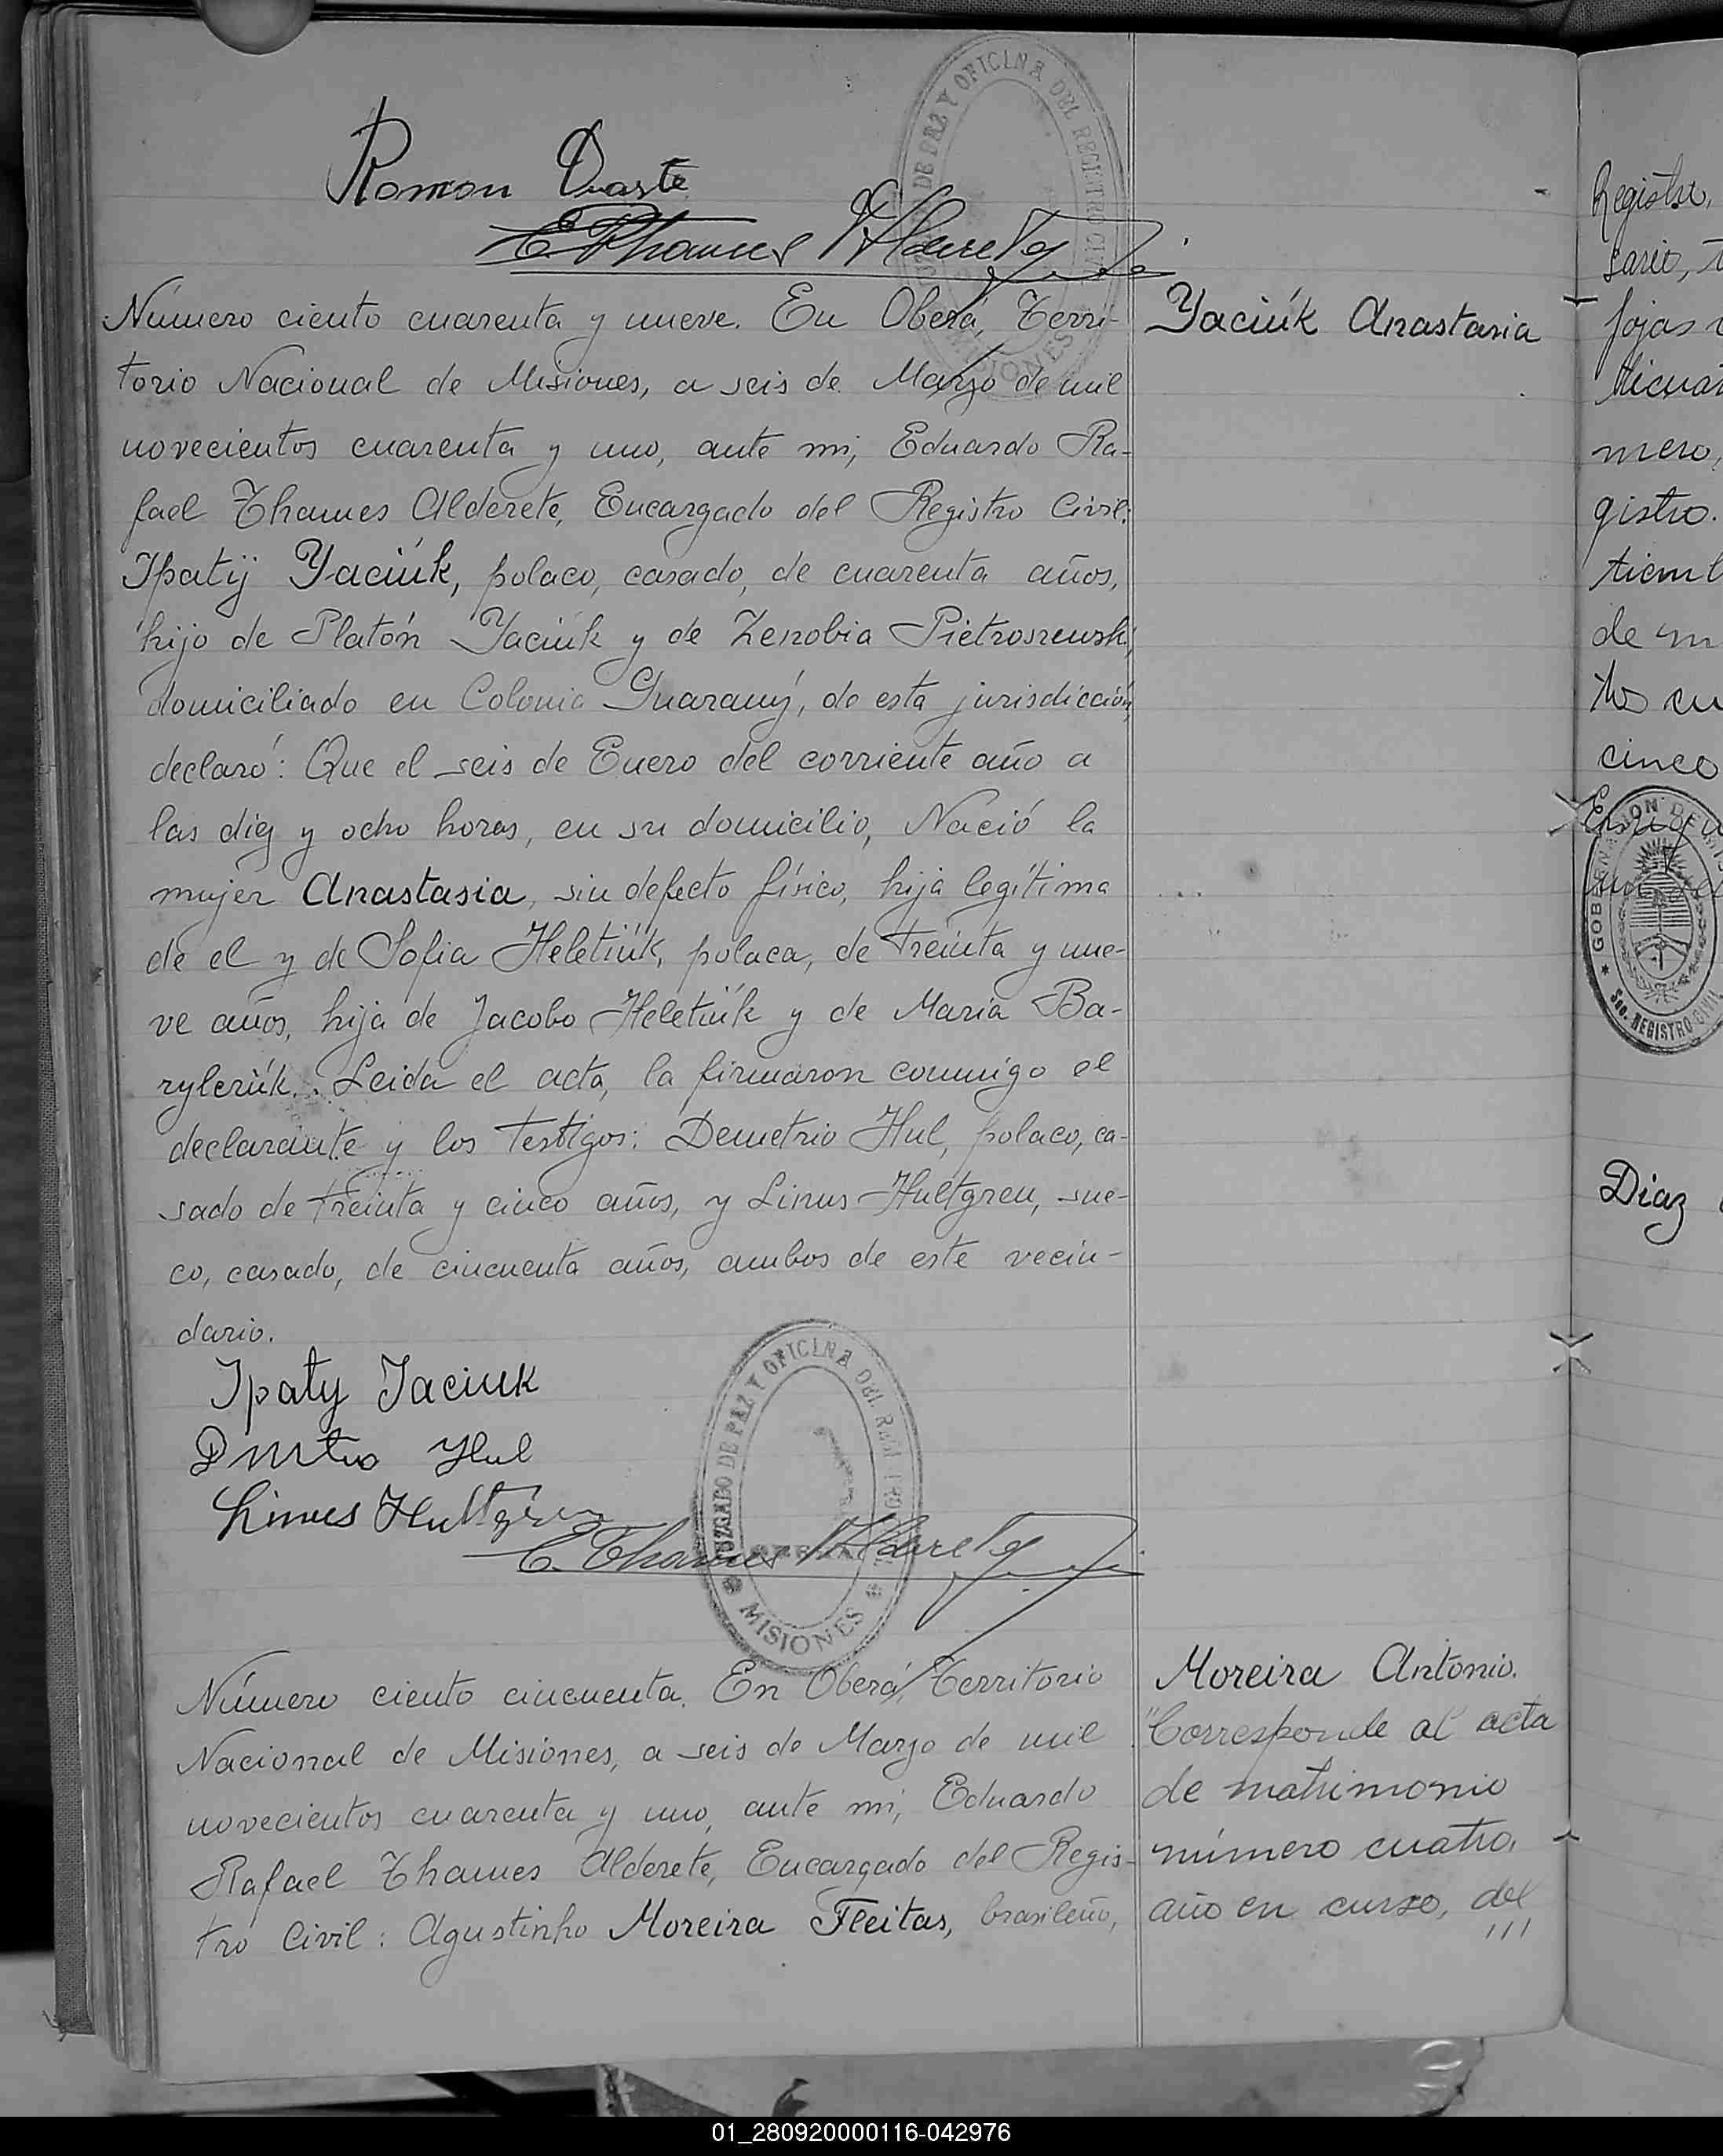 Ramon Duarte
E Thames Alderete
Número ciento cuarenta y nueve. En Oberá, Terri-
torio Nacional de Misiones, a seis de Marzo de mil
novecientos cuarenta y uno, ante mi, Eduardo Ra-
fael Thames Alderete, Encargado del Registro Civil:
Ipatij Yaciúk, polaco, casado, de cuarenta años,
hijo de Platón Yaciúk y de Zenobia Pietroszewski,
domiciliado en Colonia Guaraný, de esta jurisdicción,
declaró: Que el seis de Enero del corriente año a
las diez y ocho horas, en su domicilio, Nació la
mujer Anastasia, sin defecto físico, hija legítima
de el y de Sofia Heletiúk, polaca, de treinta y nue-
ve años, hija de Jacobo Heletiúk y de María Ba-
ryleriúk. Leida el acta, la firmaron conmigo el
declarante y los testigos: Demetrio Hul, polaco, ca-
sado de treinta y cinco años, y Linus Hultgren, sue-
co, casado, de cincuenta años, ambos de este vecin-
dario.
Ipaty Jaciuk
Dmtro Hul
Linus Hultgren
E. Thames Alderete
JUZGADO DE PAZ Y OFICINA DEL REGISTRO CIVIL
MISIONES
Número ciento cincuenta. En Oberá, Territorio
Nacional de Misiones, a seis de Marzo de mil
novecientos cuarenta y uno, ante mi, Eduardo
Rafael Thames Alderete, Encargado del Regis-
tro Civil: Agustinho Moreira Fleitas, brasileño,
DE PAZ Y OFICINA DEL REGISTRO CIVIL
MISIONES
Yaciúk Anastasia
Moreira Antonio.
"Corresponde al acta
de matrimonio
número cuatro,
año en curso, del
///
Registro,
sario,
fojas
mero,
gistro.
de
cinco
Diaz
GOBERNACION DE MIS
Sec. REGISTRO CIVIL
01_280920000116-042976